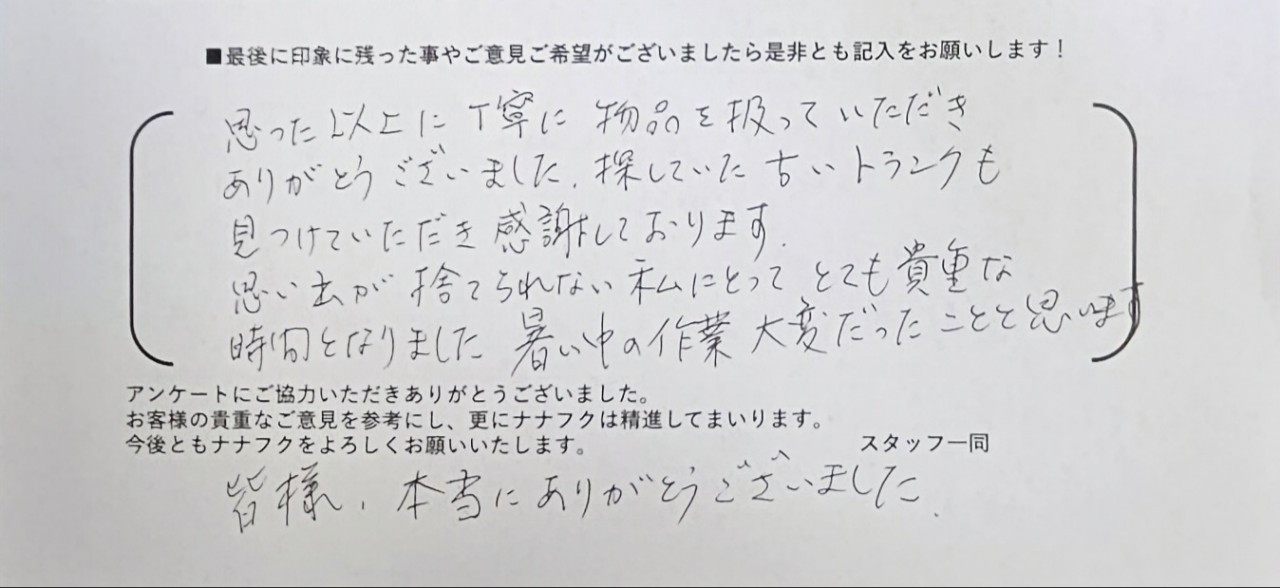 ■最後に印象に残った事やご意見ご希望がございましたら是非とも記入をお願いします！
思った以上に丁寧に物品を扱っていただき
ありがとうございました。探していた古いトランクも
見つけていただき感謝しております。
思い出が捨てられない私にとってとても貴重な
時間となりました 暑い中の作業大変だったことと思います
アンケートにご協力いただきありがとうございました。
お客様の貴重なご意見を参考にし、更にナナフクは精進してまいります。
今後ともナナフクをよろしくお願いいたします。 スタッフ一同
皆様、本当にありがとうございました。